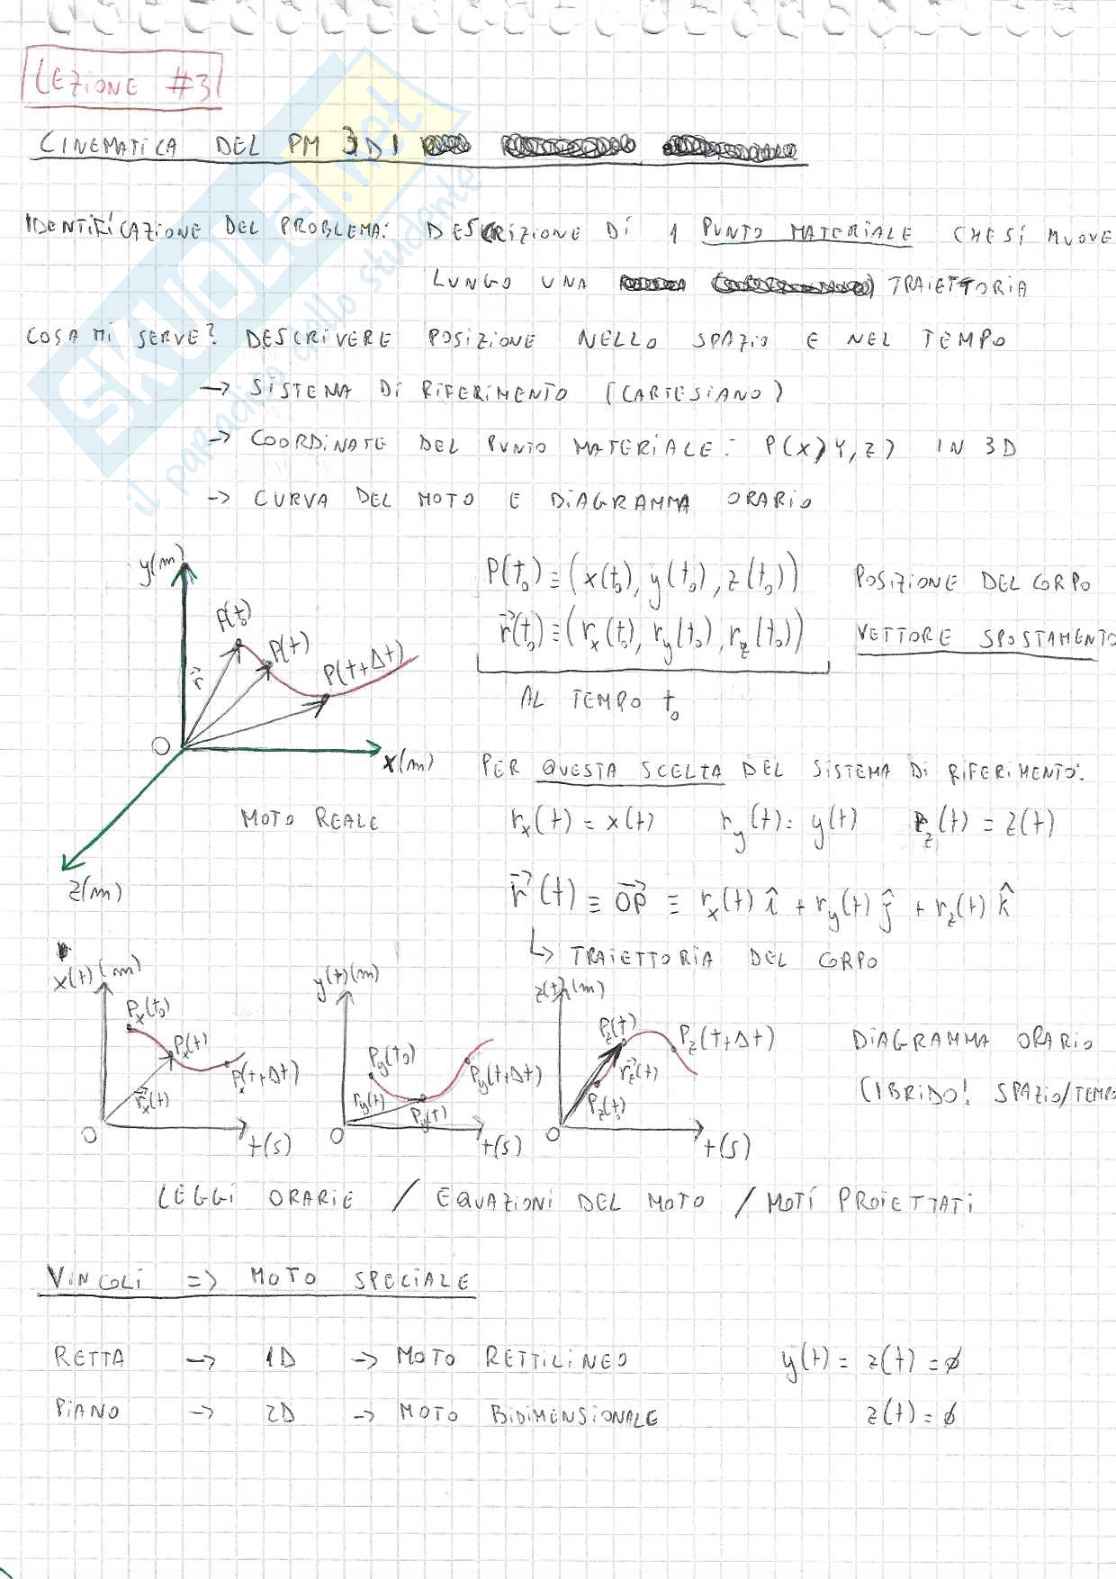 LEZIONE #3
CINEMATICA DEL PM 3D
IDENTIFICAZIONE DEL PROBLEMA: DESCRIZIONE DI 1 PUNTO MATERIALE CHE SI MUOVE
LUNGO UNA TRAIETTORIA
COSA MI SERVE? DESCRIVERE POSIZIONE NELLO SPAZIO E NEL TEMPO
→ SISTEMA DI RIFERIMENTO (CARTESIANO)
→ COORDINATE DEL PUNTO MATERIALE: P(X,Y,Z) IN 3D
→ CURVA DEL MOTO E DIAGRAMMA ORARIO
SKUOLA.net
il paradiso dello studente
y(m)
P(t₀)
P(t)
P(t+Δt)
r⃗
O
x(m)
z(m)
MOTO REALE
P(t₀) ≡ (x(t₀), y(t₀), z(t₀)) POSIZIONE DEL CORPO
r⃗(t₀) ≡ (r_x(t₀), r_y(t₀), r_z(t₀)) VETTORE SPOSTAMENTO
AL TEMPO t₀
PER QUESTA SCELTA DEL SISTEMA DI RIFERIMENTO:
r_x(t) = x(t) r_y(t) = y(t) r_z(t) = z(t)
r⃗(t) ≡ OP⃗ ≡ r_x(t) î + r_y(t) ĵ + r_z(t) k̂
↳ TRAIETTORIA DEL CORPO
x(t)(m)
P_x(t₀)
P_x(t)
P_x(t+Δt)
r⃗_x(t)
O
t(s)
y(t)(m)
P_y(t₀)
P_y(t+Δt)
r_y(t)
P_y(t)
O
t(s)
z(t)(m)
P_z(t)
P_z(t+Δt)
r⃗_z(t)
P_z(t₀)
O
t(s)
DIAGRAMMA ORARIO
(IBRIDO! SPAZIO/TEMPO
LEGGI ORARIE / EQUAZIONI DEL MOTO / MOTI PROIETTATI
VINCOLI => MOTO SPECIALE
RETTA → 1D → MOTO RETTILINEO y(t) = z(t) = ∅
PIANO → 2D → MOTO BIDIMENSIONALE z(t) = ∅